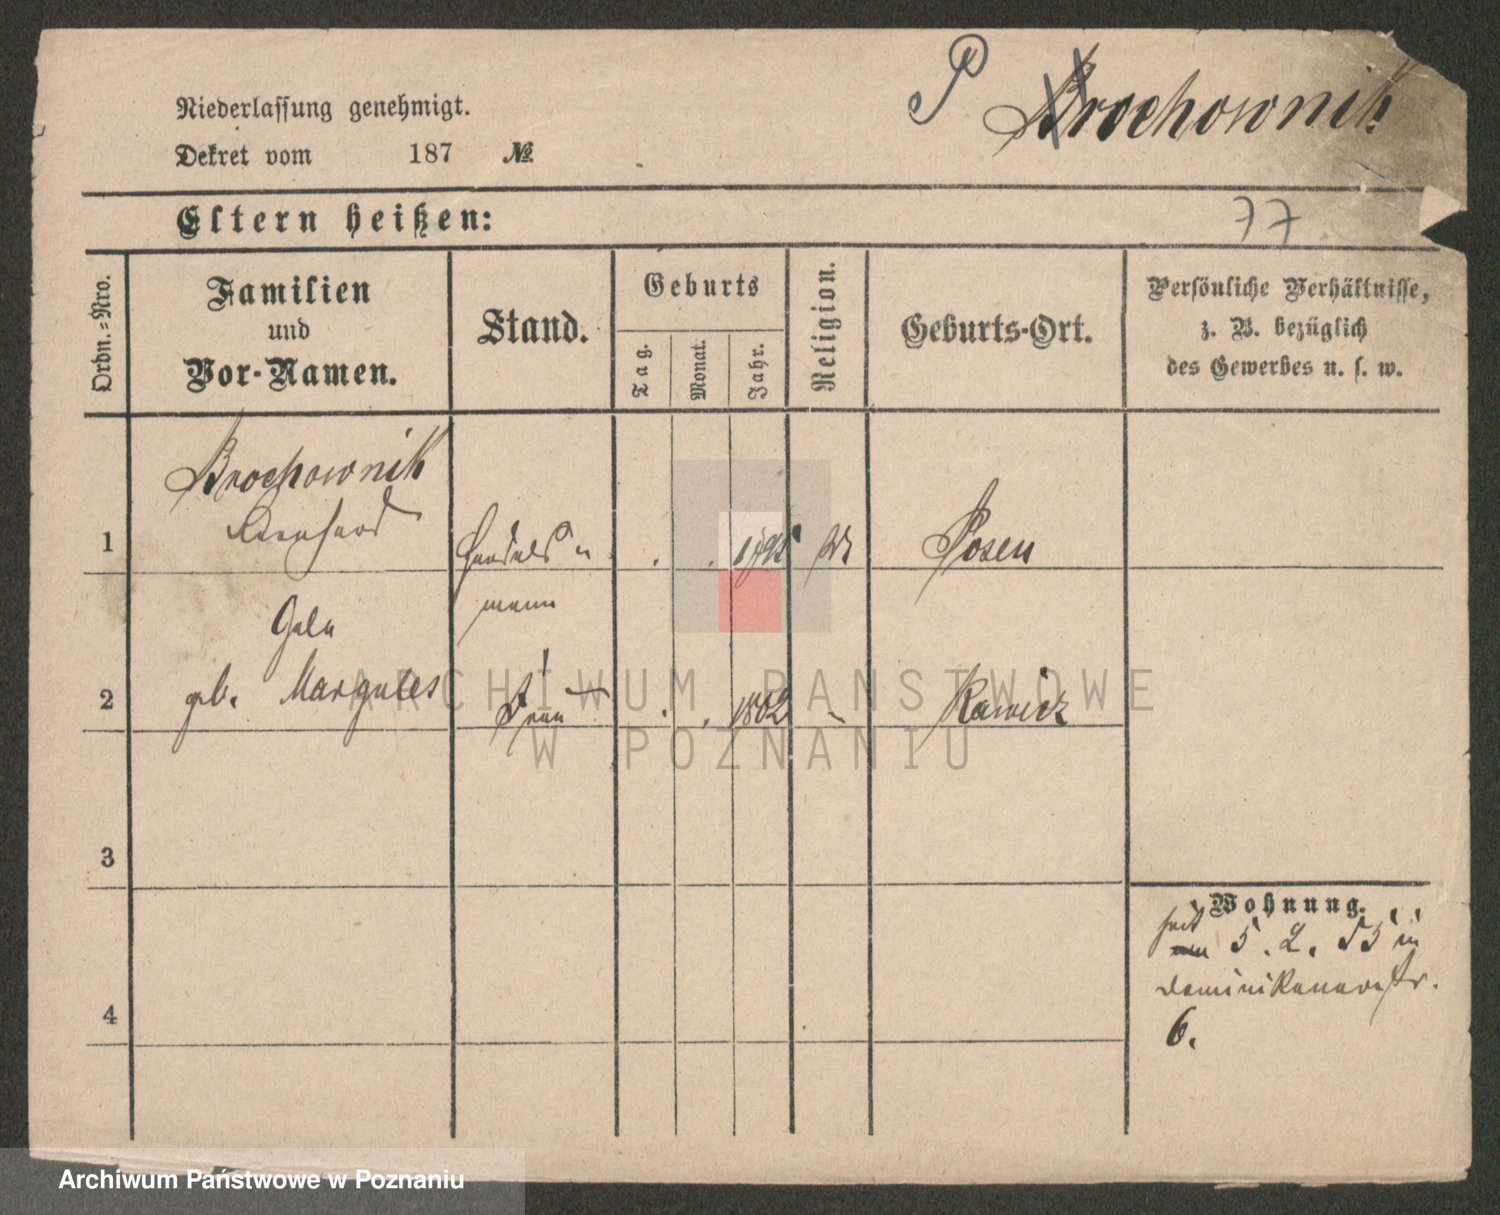 P Brochownik
Niederlassung genehmigt.
Dekret vom 187 №
Eltern heißen:
77
Ordn.=Nro.
Familien
und
Vor-Namen.
Stand.
Geburts
Tag.
Monat.
Jahr.
Religion.
Geburts-Ort.
Persönliche Verhältnisse,
z. B. bezüglich
des Gewerbes u. s. w.
Brochownik
1 Bernhard Handels . . Posen
mann
2 geb. Margules Frau . . 1802 " Rawicz
ARCHIWUM PAŃSTWOWE
W POZNANIU
3
4
Wohnung.
seit
5. 2. 53 in
Dominikanerstr.
6.
Archiwum Państwowe w Poznaniu